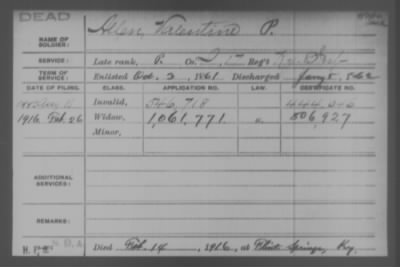 DEAD
NAME OF SOLDIER: Allen, Valentine P.
SERVICE: Late rank, P. Co. Reg't
TERM OF SERVICE: Enlisted Oct. 3, 1861 Discharged Jany 8, 1862
DATE OF FILING. CLASS. APPLICATION NO. LAW. CERTIFICATE NO.
Invalid, 546,718
1916 Feb. 26 Widow, 1,061,771 806,927
Minor,
ADDITIONAL SERVICES:
REMARKS:
Died Feb. 14, 1916, at Flint Springs, Ky.